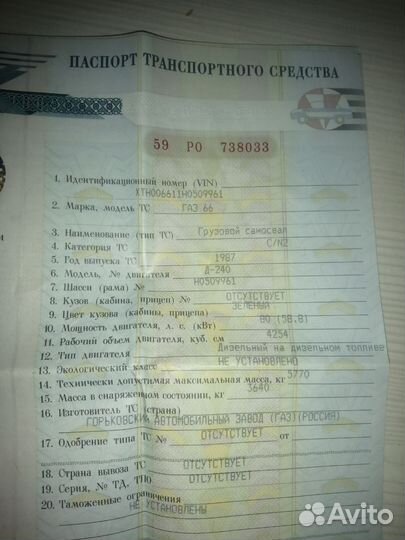 ПАСПОРТ ТРАНСПОРТНОГО СРЕДСТВА
59 РО 738033
1. Идентификационный номер (VIN)
XTH006611H0509961
2. Марка, модель ТС ГАЗ 66
3. Наименование (тип ТС) Грузовой самосвал
4. Категория ТС C/N2
5. Год выпуска ТС 1987
6. Модель, № двигателя Д-240
7. Шасси (рама) № H0509961
8. Кузов (кабина, прицеп) № ОТСУТСТВУЕТ
9. Цвет кузова (кабины, прицепа) ЗЕЛЕНЫЙ
10. Мощность двигателя, л. с. (кВт) 80 (58.8)
11. Рабочий объем двигателя, куб. см 4254
12. Тип двигателя Дизельный на дизельном топливе
13. Экологический класс НЕ УСТАНОВЛЕНО
14. Технически допустимая максимальная масса, кг 5770
15. Масса в снаряженном состоянии, кг 3640
16. Изготовитель ТС (страна)
ГОРЬКОВСКИЙ АВТОМОБИЛЬНЫЙ ЗАВОД (ГАЗ)(РОССИЯ)
17. Одобрение типа ТС № ОТСУТСТВУЕТ от
18. Страна вывоза ТС ОТСУТСТВУЕТ
19. Серия, № ТД, ТПО ОТСУТСТВУЕТ
20. Таможенные ограничения
НЕ УСТАНОВЛЕНЫ
Avito